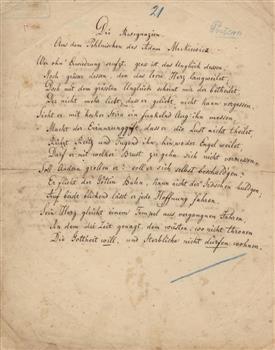 21
Die Resignazion.
Aus dem Pohlnischen des Adam Mickiewicz
Wer ohn' Erwiderung seufzt, groß ist das Unglück dessen,
Noch größer dessen, den das leere Herz langweilet,
Doch mit dem größten Unglück scheint mir der betheilet,
Der nicht mehr liebt, daß er geliebt, nicht kann vergessen.
Sieht er mit Stirn ein funkelnd Aug' ihn messen,
Macht der Erinnrung Gift, dass er die Lust nicht theilet,
Rührt Reitz und Tugend ihn, hin, wo der Engel weilet,
Darf er mit welker Brust zu gehn sich nicht vermessen.
Soll Andern grollen er? soll er sich selbst beschuldgen?
Er flieht der Göttin Bahn, kann nicht der Irdschen huldgen,
Auf beide blickend läßt er jede Hoffnung fahren.
Sein Herz gleicht einem Tempel aus vergangnen Jahren
An dem die Zeit genagt, den wüsten, wo nicht thronen
Die Gottheit will, und Sterbliche nicht dürfen wohnen.